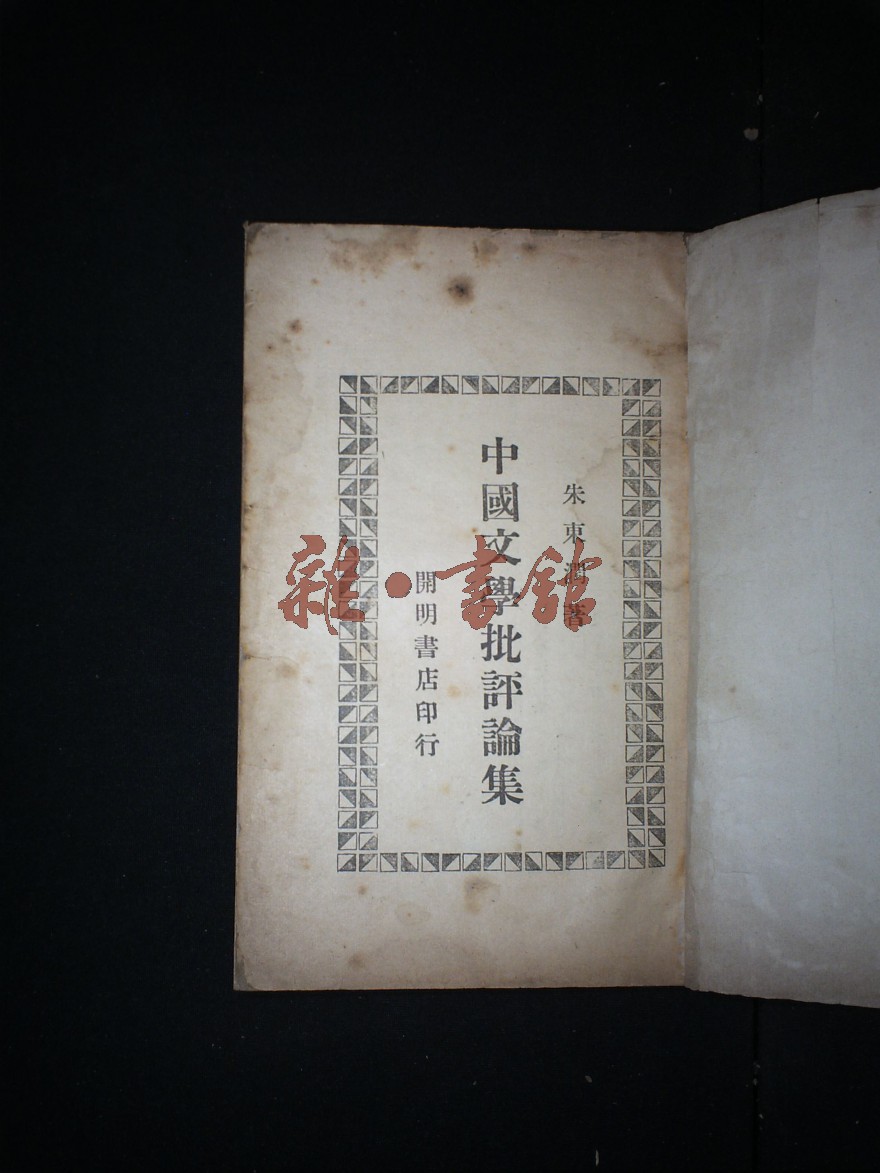 朱東潤著
中國文學批評論集
開明書店印行
雜·書館